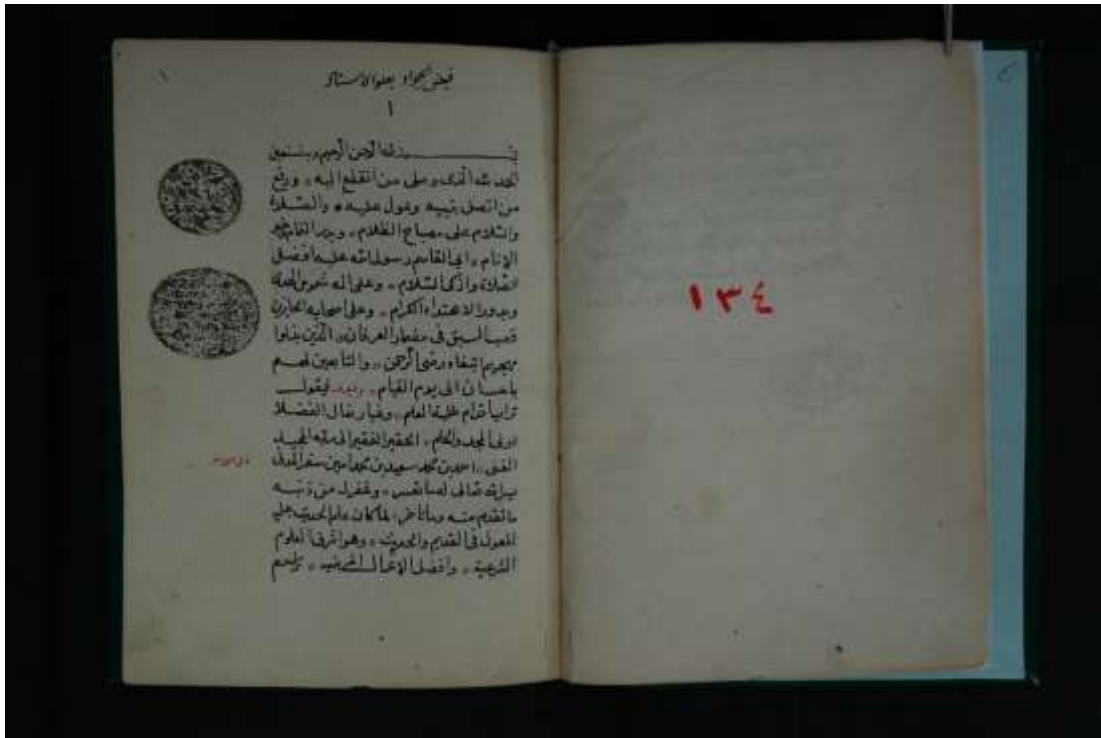 ١٣٤
١
فيض الجواد بعلو الاسناد
١
بسم الله الرحمن الرحيم وبه نستعين
الحمد لله الذى وصل من انقطع اليه ورفع
من اتصل بنبيه وعول عليه والصلاة
والسلام على مصباح الظلام وبدر التمام خير
الانام ابى القاسم رسول الله عليه افضل
الصلاة وازكى السلام وعلى اله شموس الهداية
وبدور الاهتداء الكرام وعلى اصحابه الحايزين
قصب السبق فى مضمار العرفان الذين بذلوا
مهجهم ابتغاء رضى الرحمن والتابعين لهم
باحسان الى يوم القيام وبعد فيقول
تراب اقدام طلبة العلم وغبار نعال الفضلاء
اولى المجد والحلم الحقير الفقير الى منه المجيد
الغنى احمد بن محمد سعيد بن محمد امين سفر المدنى
الله تعالى له وغفر له من ذنبه
ما تقدم منه وما تاخر لما كان علم الحديث عليه
المعول فى القديم والحديث وهو اشرف العلوم
الشرعية وافضل الاعمال